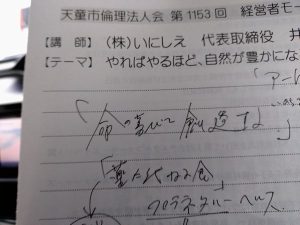 天童市倫理法人会 第1153回 経営者モー
【講 師】 (株)いにしえ 代表取締役 井
【テーマ】 やればやるほど、自然が豊かにな
「アート
「命の喜びを創造する」
食」
プラネタリーヘルス